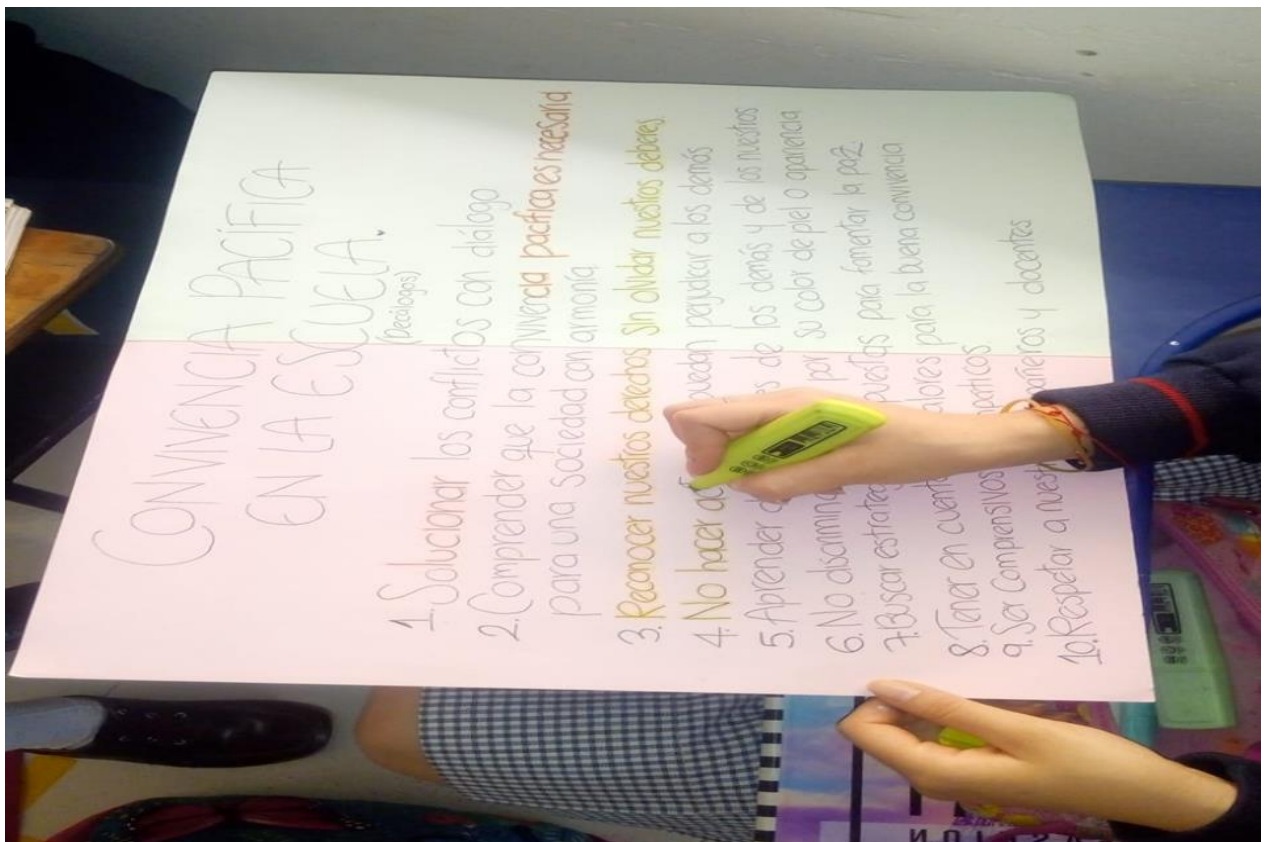 CONVIVENCIA PACÍFICA
EN LA ESCUELA.
(Decálogos)
1. Solucionar los conflictos con diálogo
2. Comprender que la convivencia pacífica es necesaria
para una sociedad con armonía
3. Reconocer nuestros derechos sin olvidar nuestros deberes
4. No hacer puedan perjudicar a los demás
5. Aprender de los demás y de los nuestros
6. No por su color de piel o apariencia
7. Buscar para fomentar la paz
8. Tener en para la buena convivencia
9. Ser Comprensivos
10. Respetar a y docentes